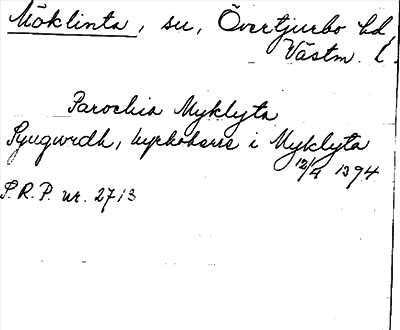 Möklinta, su, Övertjurbo hd,
Västm. l.
Parochia Myklyta
Syugurdh, kyrkoherre i Myklyta
12/4 1394
S.R.P. nr. 2713